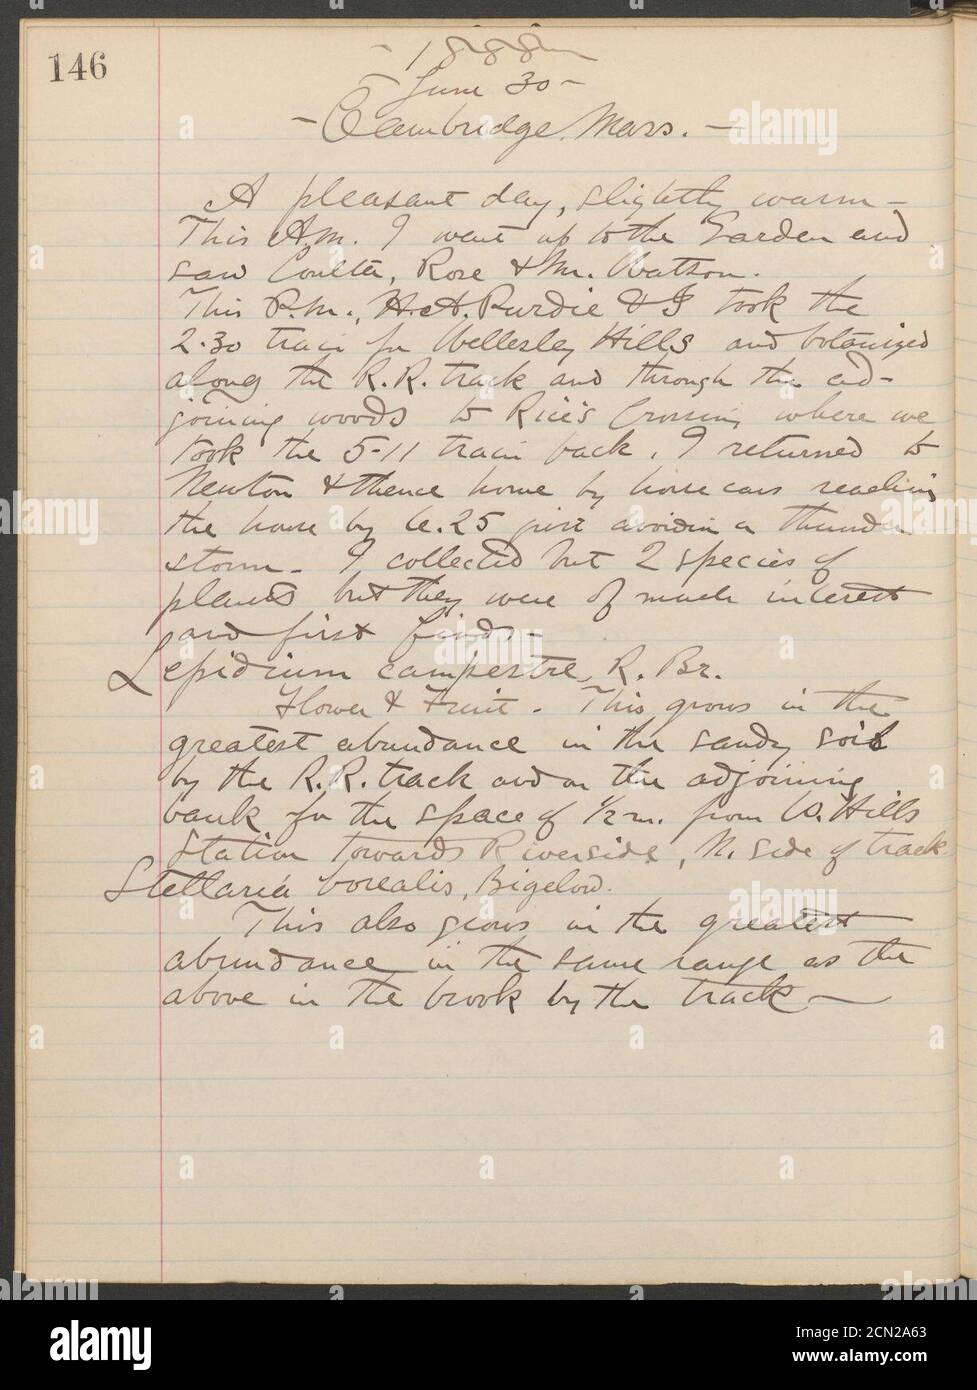 146
- 1888 -
- June 30 -
- Cambridge, Mass. -
A pleasant day, slightly warm -
This A.m. I went up to the Garden and
saw Coulter, Rose & Mr. Watson.
This P.m., H.A. Purdie & I took the
2.30 train for Wellesley Hills and botanized
along the R.R. track and through the ad-
joining woods to Rice's Crossing where we
took the 5-11 train back. I returned to
Newton & thence home by horse cars reaching
the house by 6.25 just avoiding a thunder
storm - I collected but 2 species of
plants but they were of much interest
and first finds -
Lepidium campestre, R. Br.
Flower & Fruit - This grows in the
greatest abundance in the sandy soil
by the R.R. track and on the adjoining
bank for the space of 1/2 m. from W. Hills
Station towards Riverside, N. side of track
Stellaria borealis, Bigelow.
This also grows in the greatest
abundance in the same range as the
above in the brook by the track -
alamy
Image ID: 2CN2A63
www.alamy.com